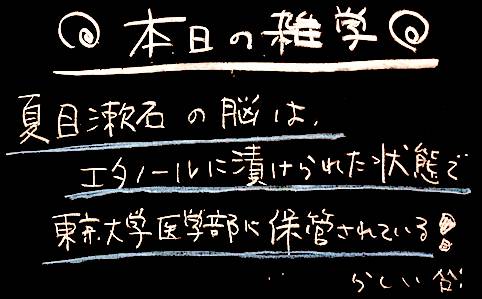 本日の雑学
夏目漱石の脳は、
エタノールに漬けられた状態で
東京大学医学部に保管されている!
らしい